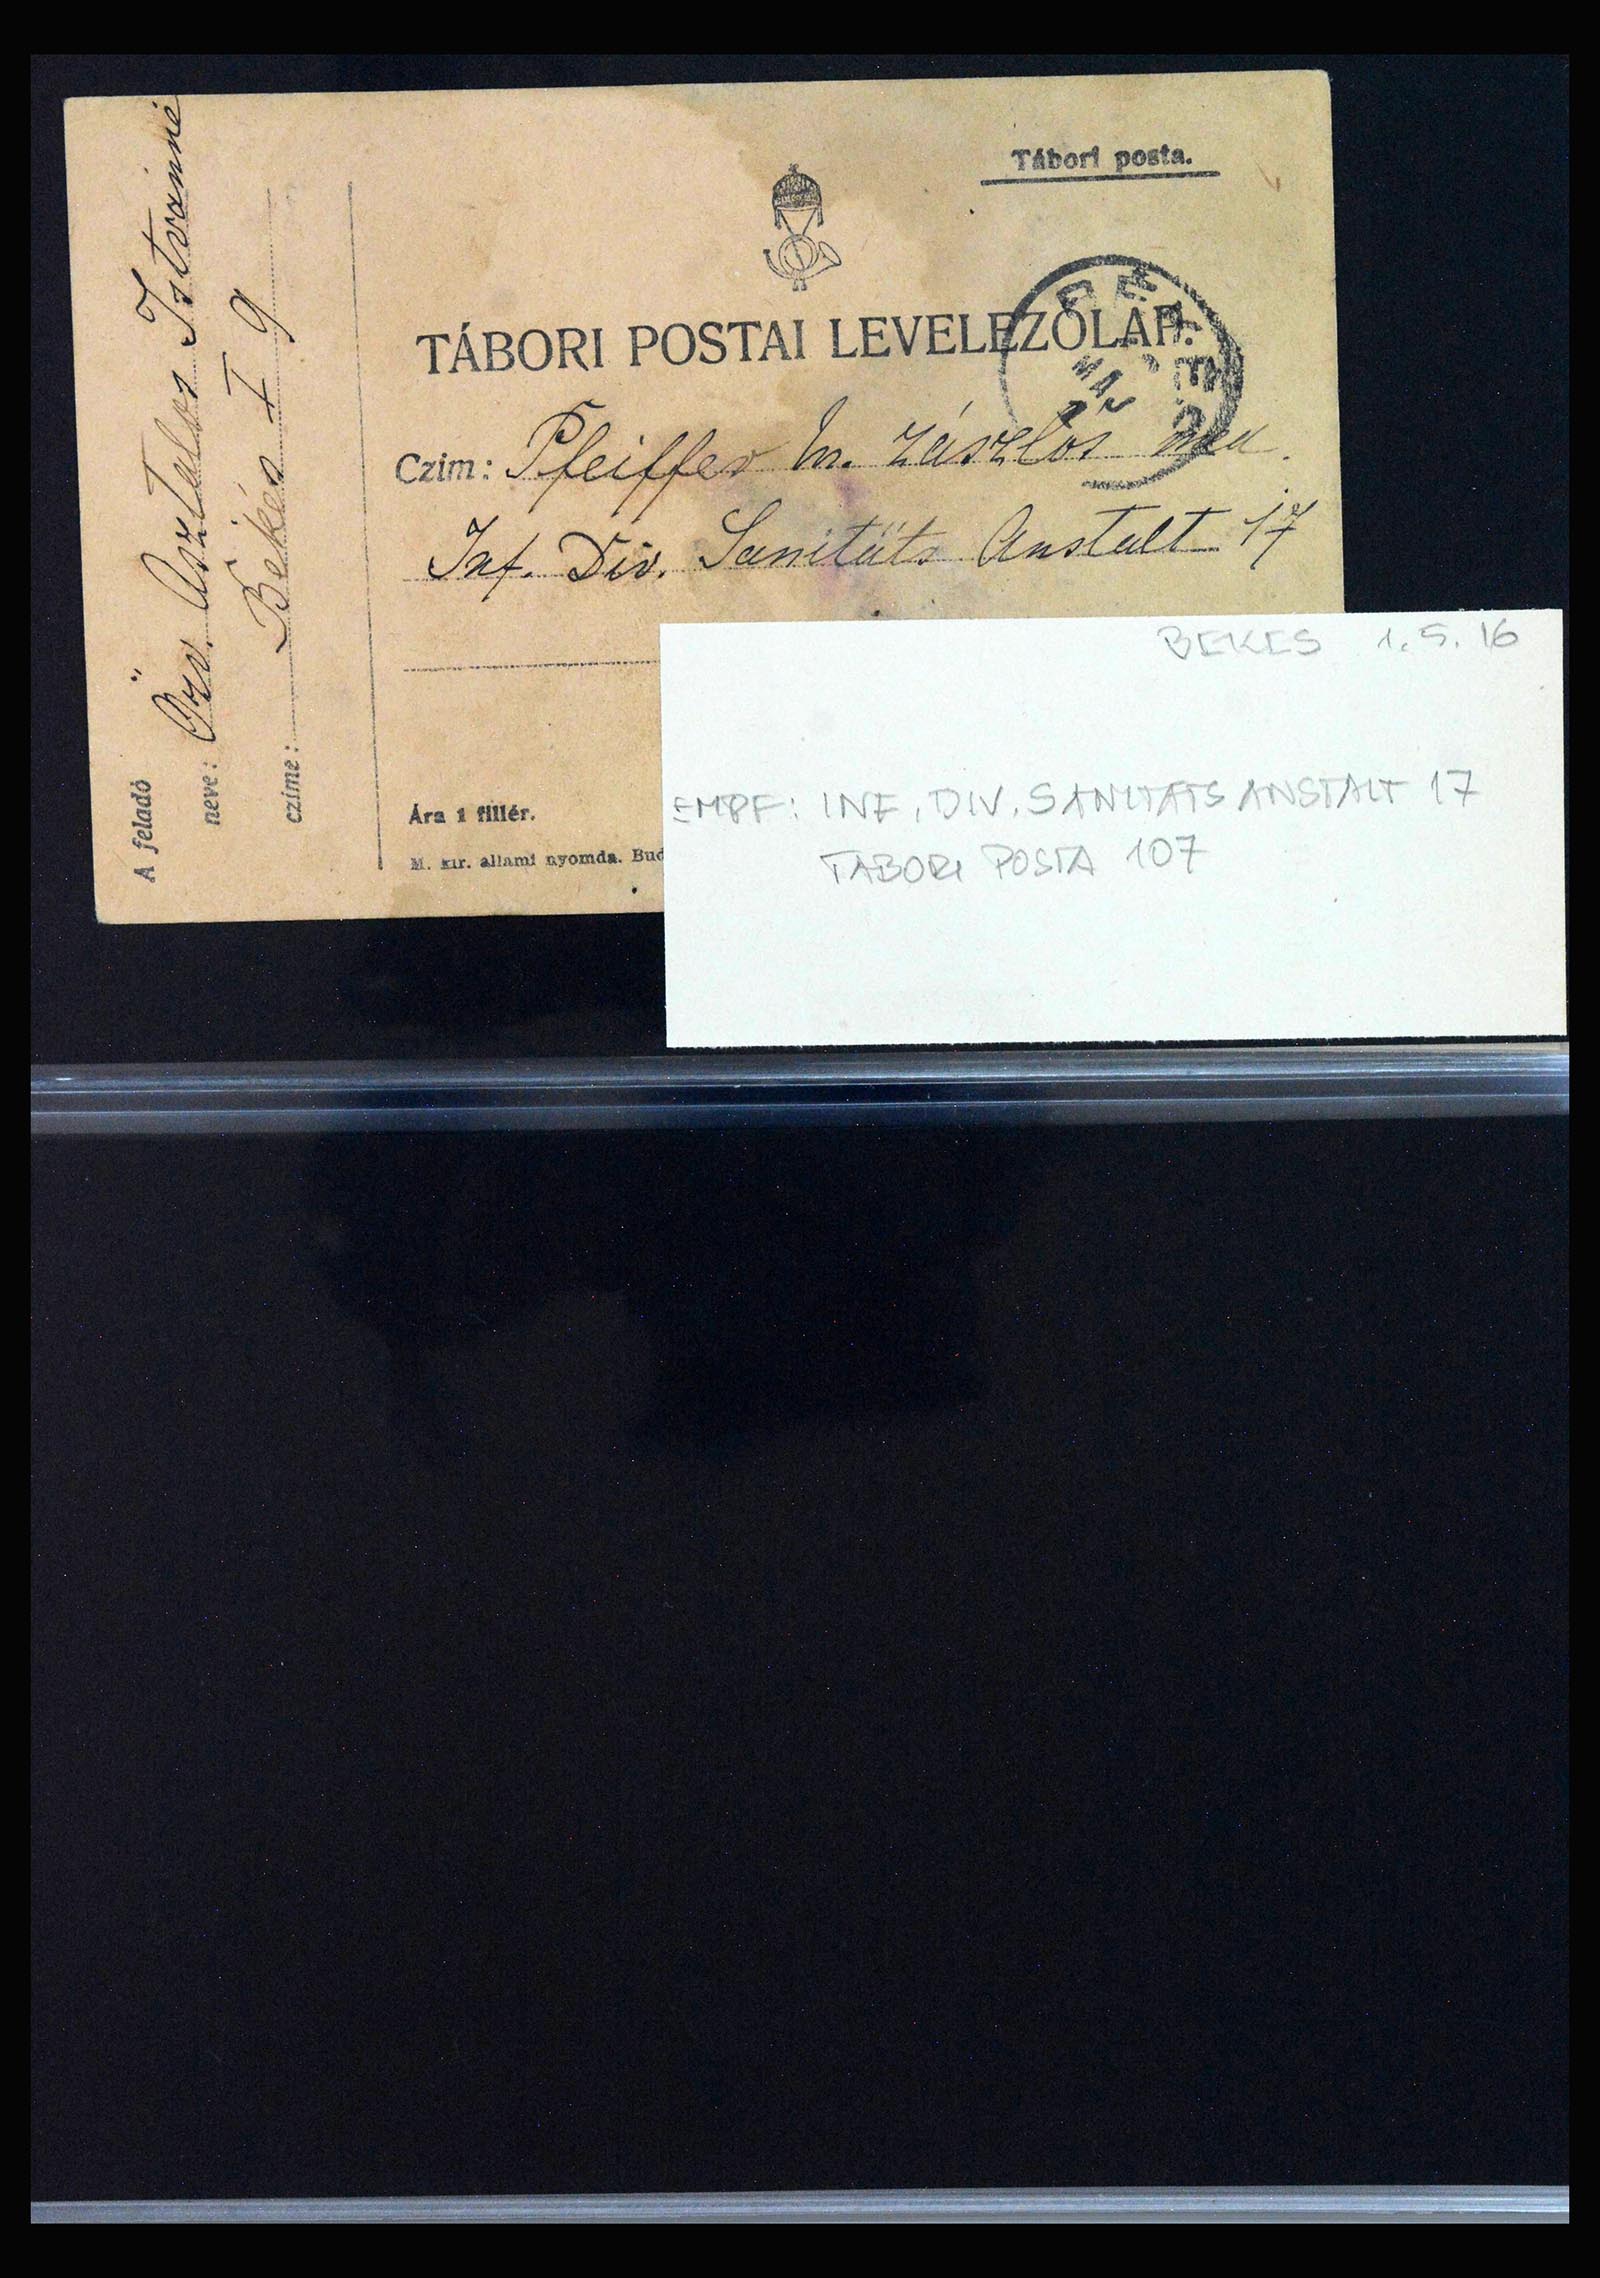 Tábori posta.
TÁBORI POSTAI LEVELEZŐLAP.
Czim: Pfeiffer M. zászlós med.
Inf. Div. Sanitäts Anstalt 17
Ára 1 fillér.
M. kir. állami nyomda. Bud
A feladó
neve: Özv. Asztalos Istvánné
czime: Békés I 9
BÉKÉS
MÁJ
BEKES 1.5.16
EMPF: INF. DIV. SANITÄTS ANSTALT 17
TABORI POSTA 107